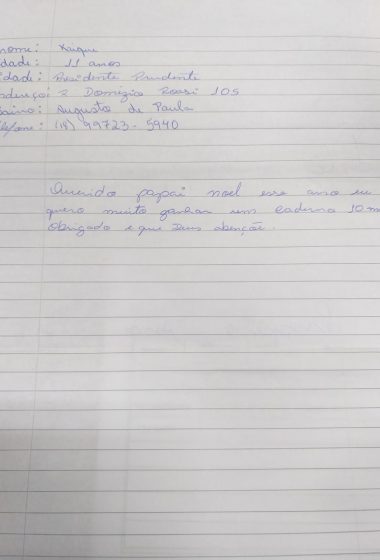 nome: Kaique
dade: 11 anos
idade: Presidente Prudente
ndereço: R Domingio Rossi 105
airro: Augusto de Paula
lefone: (18) 99723-5940
Querido papai noel esse ano eu
quero muito ganhar um caderno 10 m
Obrigado e que Deus abençõe.